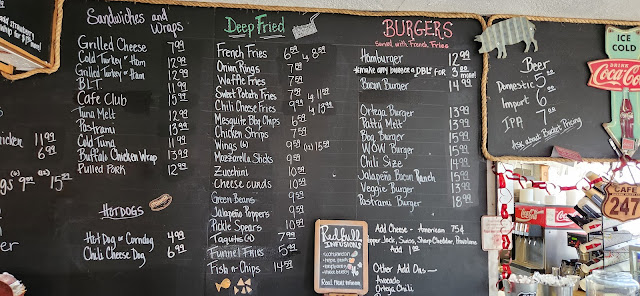 Sandwiches and Wraps
Grilled Cheese 7.99
Cold Turkey or Ham 12.99
Grilled Turkey or Ham 12.99
B.L.T. 11.99
Cafe Club 15.99
Tuna Melt 12.99
Pastrami 13.99
Cold Tuna 11.99
Buffalo Chicken Wrap 13.99
Pulled Pork 12.99
11.99
6.99
15.99
HOTDOGS
Hot Dog or Corndog 4.99
Chili Cheese Dog 6.99
Deep Fried
French Fries 6.59 4 8.59
Onion Rings 7.59
Waffle Fries 7.59
Sweet Potato Fries 7.59 4 11.59
Chili Cheese Fries 9.99 4 13.99
Mesquite Bbq Chips 6.59
Chicken Strips 7.59
Wings (6) 9.99 (12) 15.59
Mozzarella Sticks 9.59
Zucchini 10.59
Cheese Curds 10.59
Green Beans 9.59
Jalapeño Poppers 9.59
Pickle Spears 10.59
Taquitos 7.99
Funnel Fries 5.99
Fish n-Chips 14.59
BURGERS
Served with French Fries
Hamburger 12.99
*Make any burger a DBL* For 3.00 more!
Bacon Burger 14.99
Ortega Burger 13.99
Patty Melt 13.99
Bbq Burger 15.99
WOW Burger 15.99
Chili Size 14.99
Jalapeño Bacon Ranch 15.99
Veggie Burger 13.99
Pastrami Burger 18.99
Add Cheese - American 75¢
Pepper Jack, Swiss, Sharp Cheddar, Provolone
Add 1.00
Other Add Ons
Avocado
Ortega Chili
Red Bull
INFUSIONS
Beer
Domestic 5.00
Import 6.00
IPA 7.00
Ask about Bucket Pricing
ICE
COLD
DRINK
Coca-Cola
CAFE
247